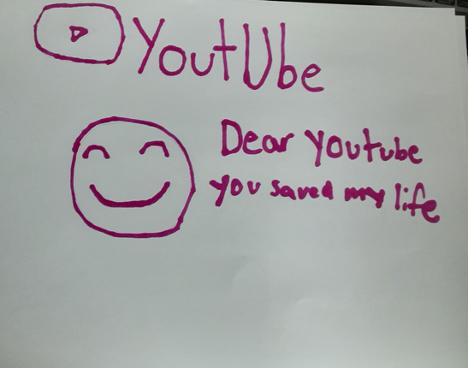 YoutUbe
Dear youtube
you saved my life